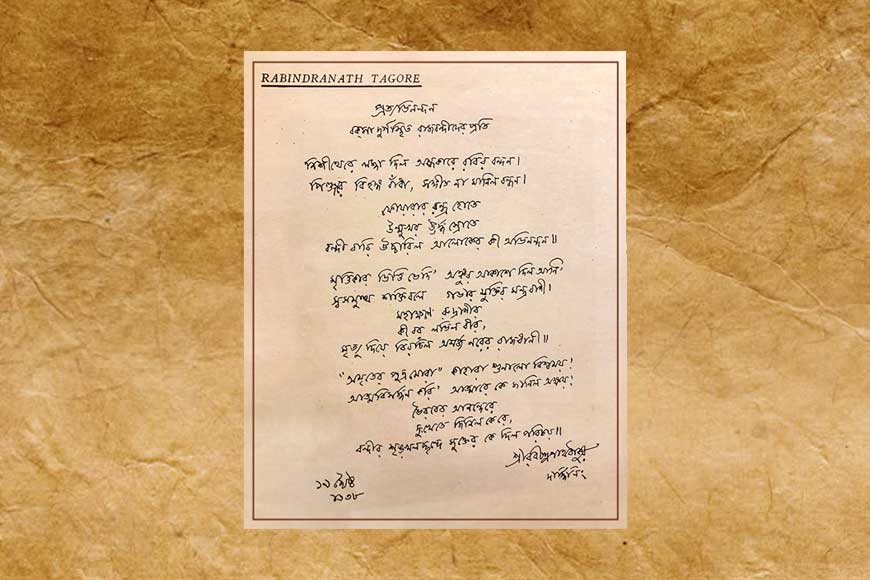 RABINDRANATH TAGORE
প্রত্যভিনন্দন
বক্সা দুর্গস্থিত রাজবন্দীদের প্রতি
নিশীথেরে লজ্জা দিল অন্ধকারে রবির বন্দন।
পিঞ্জরে বিহঙ্গ বাঁধা, সঙ্গীত না মানিল বন্ধন।
ফোয়ারার রন্ধ্র হোতে
উন্মুখর ঊর্দ্ধ স্রোতে
বন্দী বারি উচ্চারিল আলোকের কী অভিনন্দন॥
মৃত্তিকার ভিত্তি ভেদি' অঙ্কুর আকাশে দিল আনি'
স্বসমুত্থ শক্তিবলে গভীর মুক্তির মন্ত্রবাণী।
মহাক্ষণে রুদ্রাণীর
কী বর লভিল বীর,
মৃত্যু দিয়ে বিরচিল অমর্ত্য নরের রাজধানী॥
"অমৃতের পুত্র মোরা" কাহারা শুনালো বিশ্বময়!
আত্মবিসর্জ্জন করি' আত্মারে কে জানিল অক্ষয়!
ভৈরবের আনন্দেরে
দুঃখেতে জিনিল কে রে,
বন্দীর শৃঙ্খলচ্ছন্দে মুক্তের কে দিল পরিচয়॥
শ্রীরবীন্দ্রনাথ ঠাকুর
দার্জ্জিলিং
১৯ জ্যৈষ্ঠ
১৩৩৮